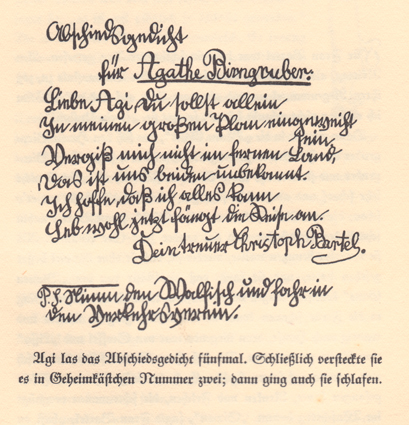 Abschiedsgedicht
für Agathe Birngruber:
Liebe Agi, Du sollst allein
In meinen großen Plan eingeweiht
sein,
Vergiß mich nicht im fernen Land,
Das ist uns beiden unbekannt.
Ich hoffe, daß ich alles kann
Leb wohl jetzt fängt die Reise an.
Dein treuer Christoph Bartel.
P.S. Nimm den Walfisch und fahr in
den Verkehrsverein.
Agi las das Abschiedsgedicht fünfmal. Schließlich versteckte sie
es in Geheimkästchen Nummer zwei; dann ging auch sie schlafen.